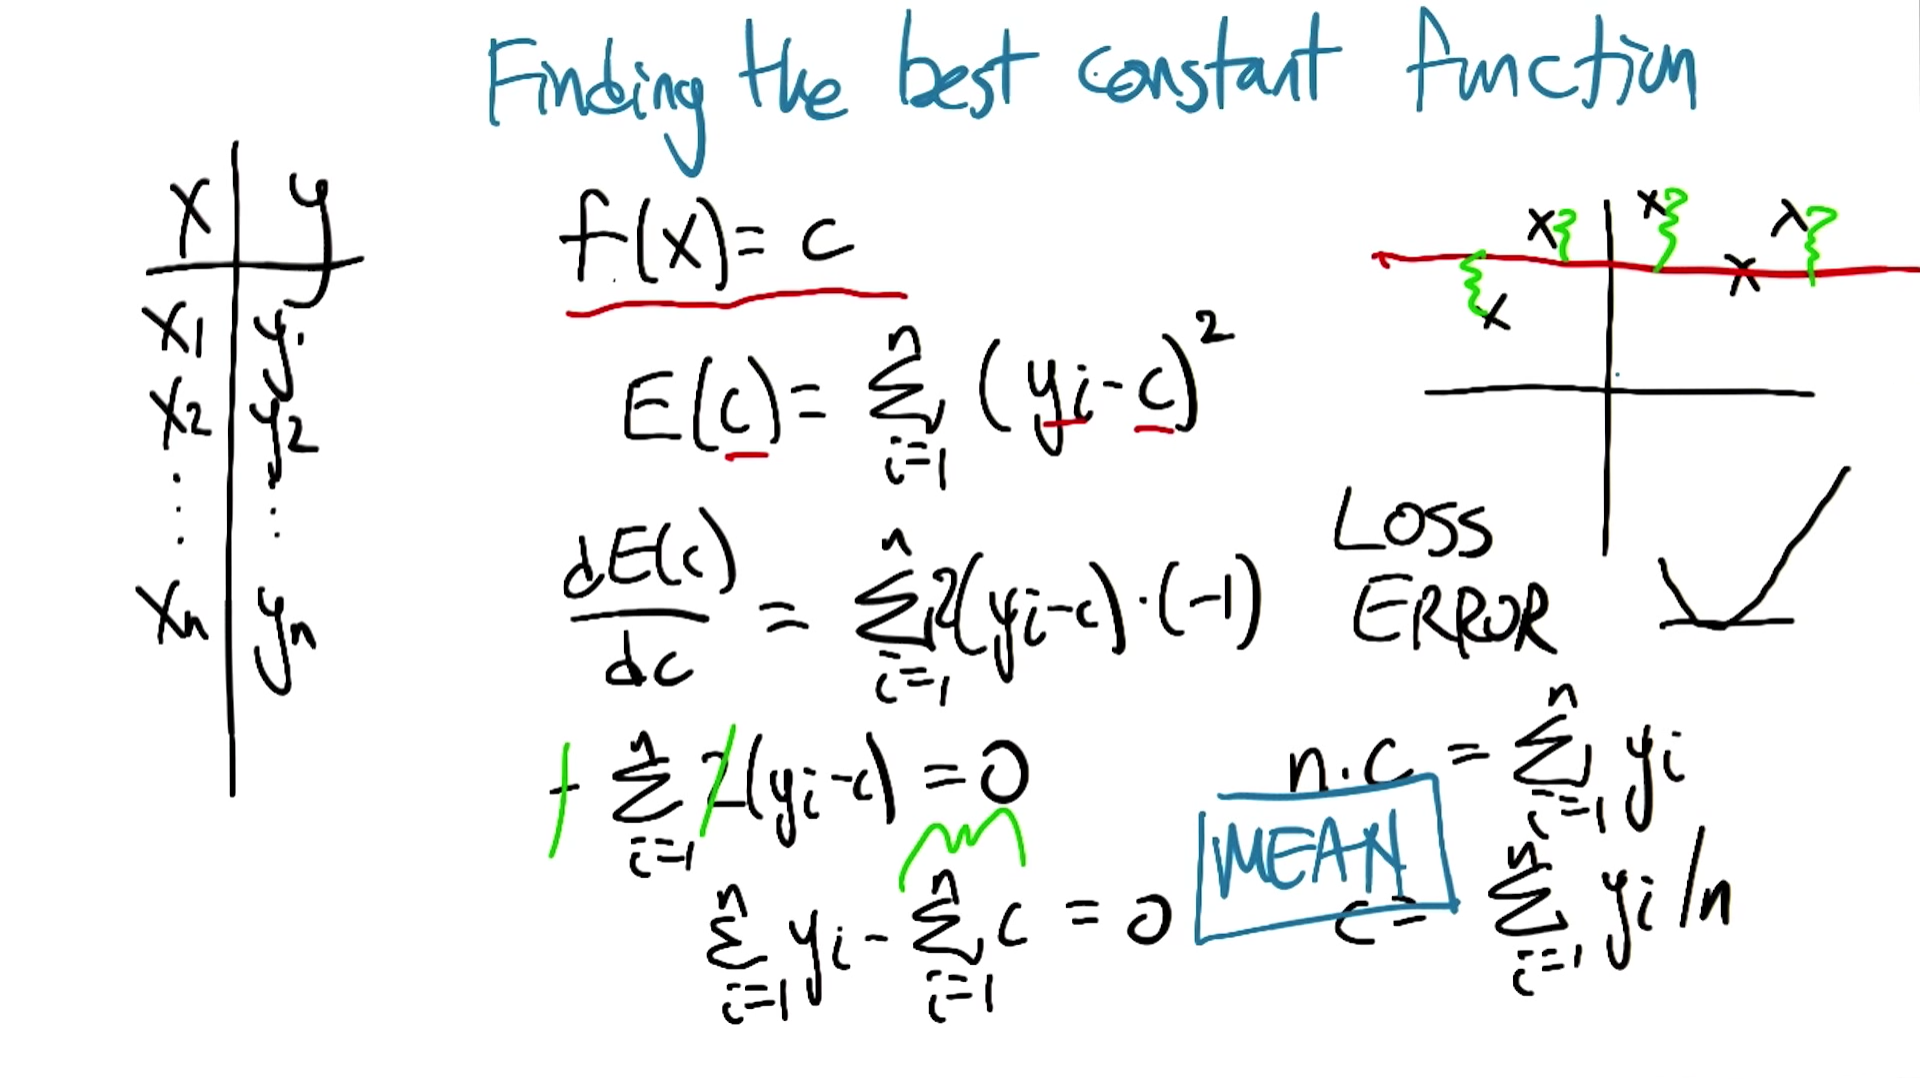 Finding the best constant function
x y
x1 y1
x2 y2
⋮ ⋮
xn yn
f(x) = c
E(c) = Σ_{i=1}^{n} (yi - c)^2
dE(c)/dc = Σ_{i=1}^{n} 2(yi - c) · (-1)
- Σ_{i=1}^{n} 2(yi - c) = 0
Σ_{i=1}^{n} yi - Σ_{i=1}^{n} c = 0
x x x x x
LOSS
ERROR
n · c = Σ_{i=1}^{n} yi
MEAN
c = Σ_{i=1}^{n} yi / n